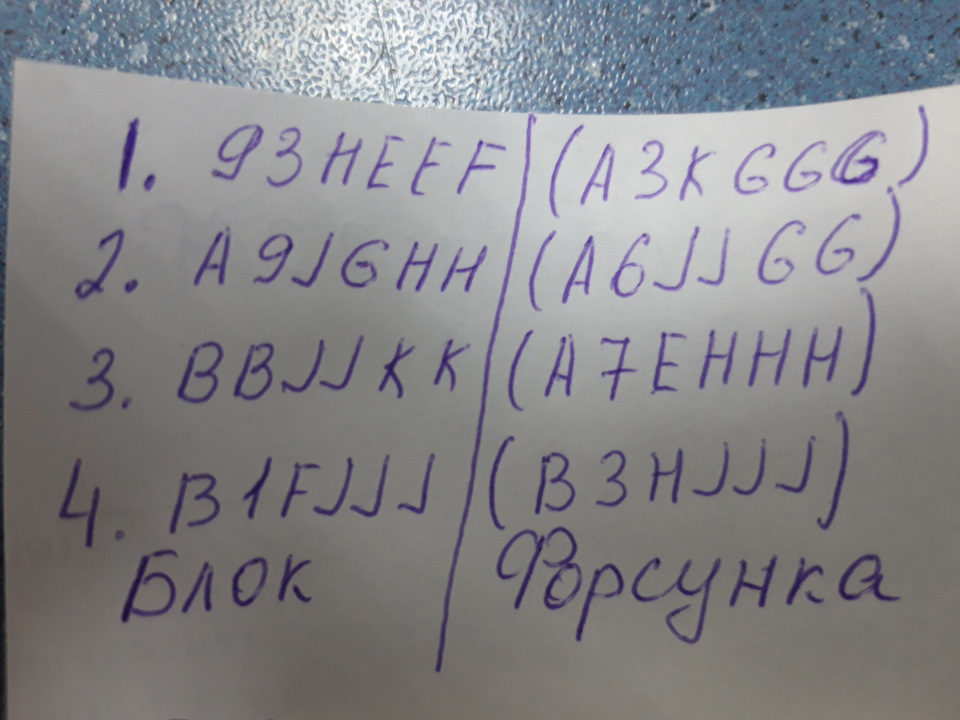 1. 93HEEF (A3KGGG)
2. A9JGHH (A6JJGG)
3. BBJJKK (A7EHHH)
4. B1FJJJ (B3HJJJ)
Блок Форсунка